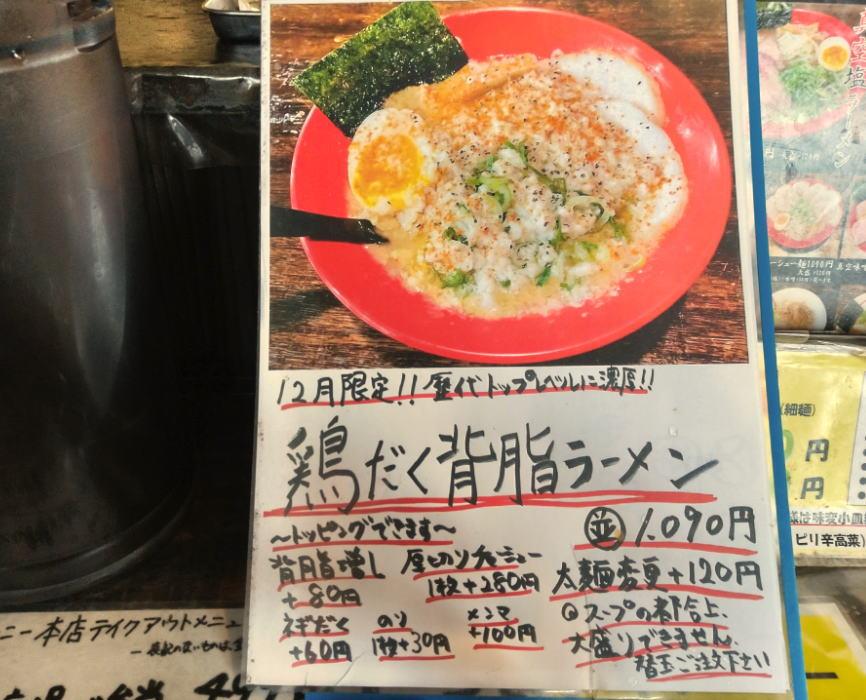 12月限定!! 歴代トップレベルに濃厚!!
鶏だく背脂ラーメン
並 1.090円
〜トッピングできます〜
背脂増し
+80円
厚切りチャーシュー
1枚+280円
ネギだく
+60円
のり
1枚+30円
メンマ
+100円
太麺変更+120円
スープの都合上、
大盛りできません。
替玉ご注文下さい
(細麺)
円
円
様は味変小皿
ピリ辛高菜)
ニー本店テイクアウトメニュ